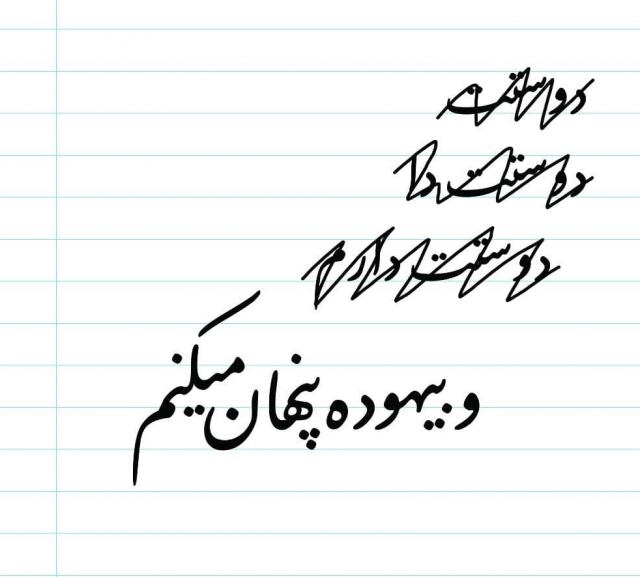 دوستت
دوستت دا
دوستت دارم
و بیهوده پنهان میکنم